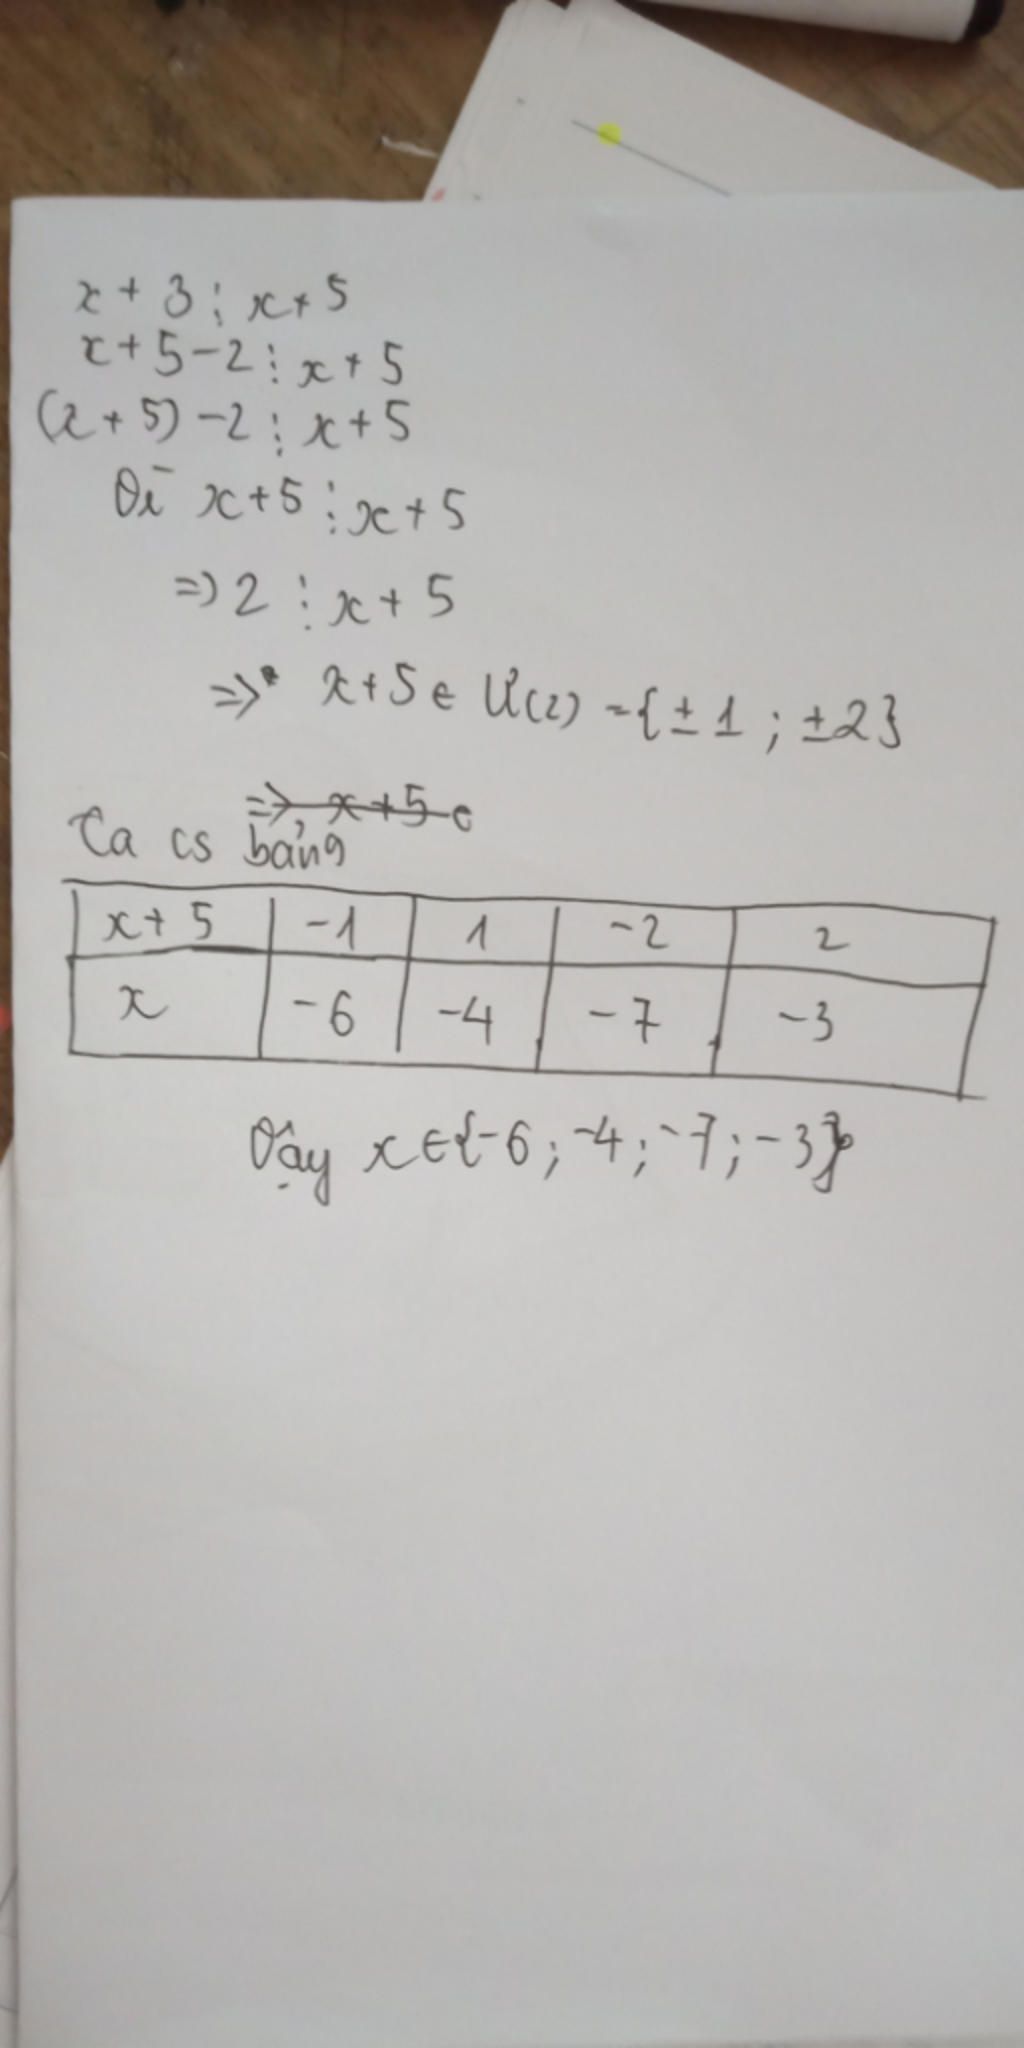 x + 3 ⋮ x + 5
x + 5 - 2 ⋮ x + 5
(x + 5) - 2 ⋮ x + 5
Vì x + 5 ⋮ x + 5
=> 2 ⋮ x + 5
=> x + 5 ∈ Ư(2) = {±1 ; ±2}
=> x + 5 ∈
Ta có bảng
x + 5 -1 1 -2 2
x -6 -4 -7 -3
Vậy x ∈ {-6 ; -4 ; -7 ; -3}